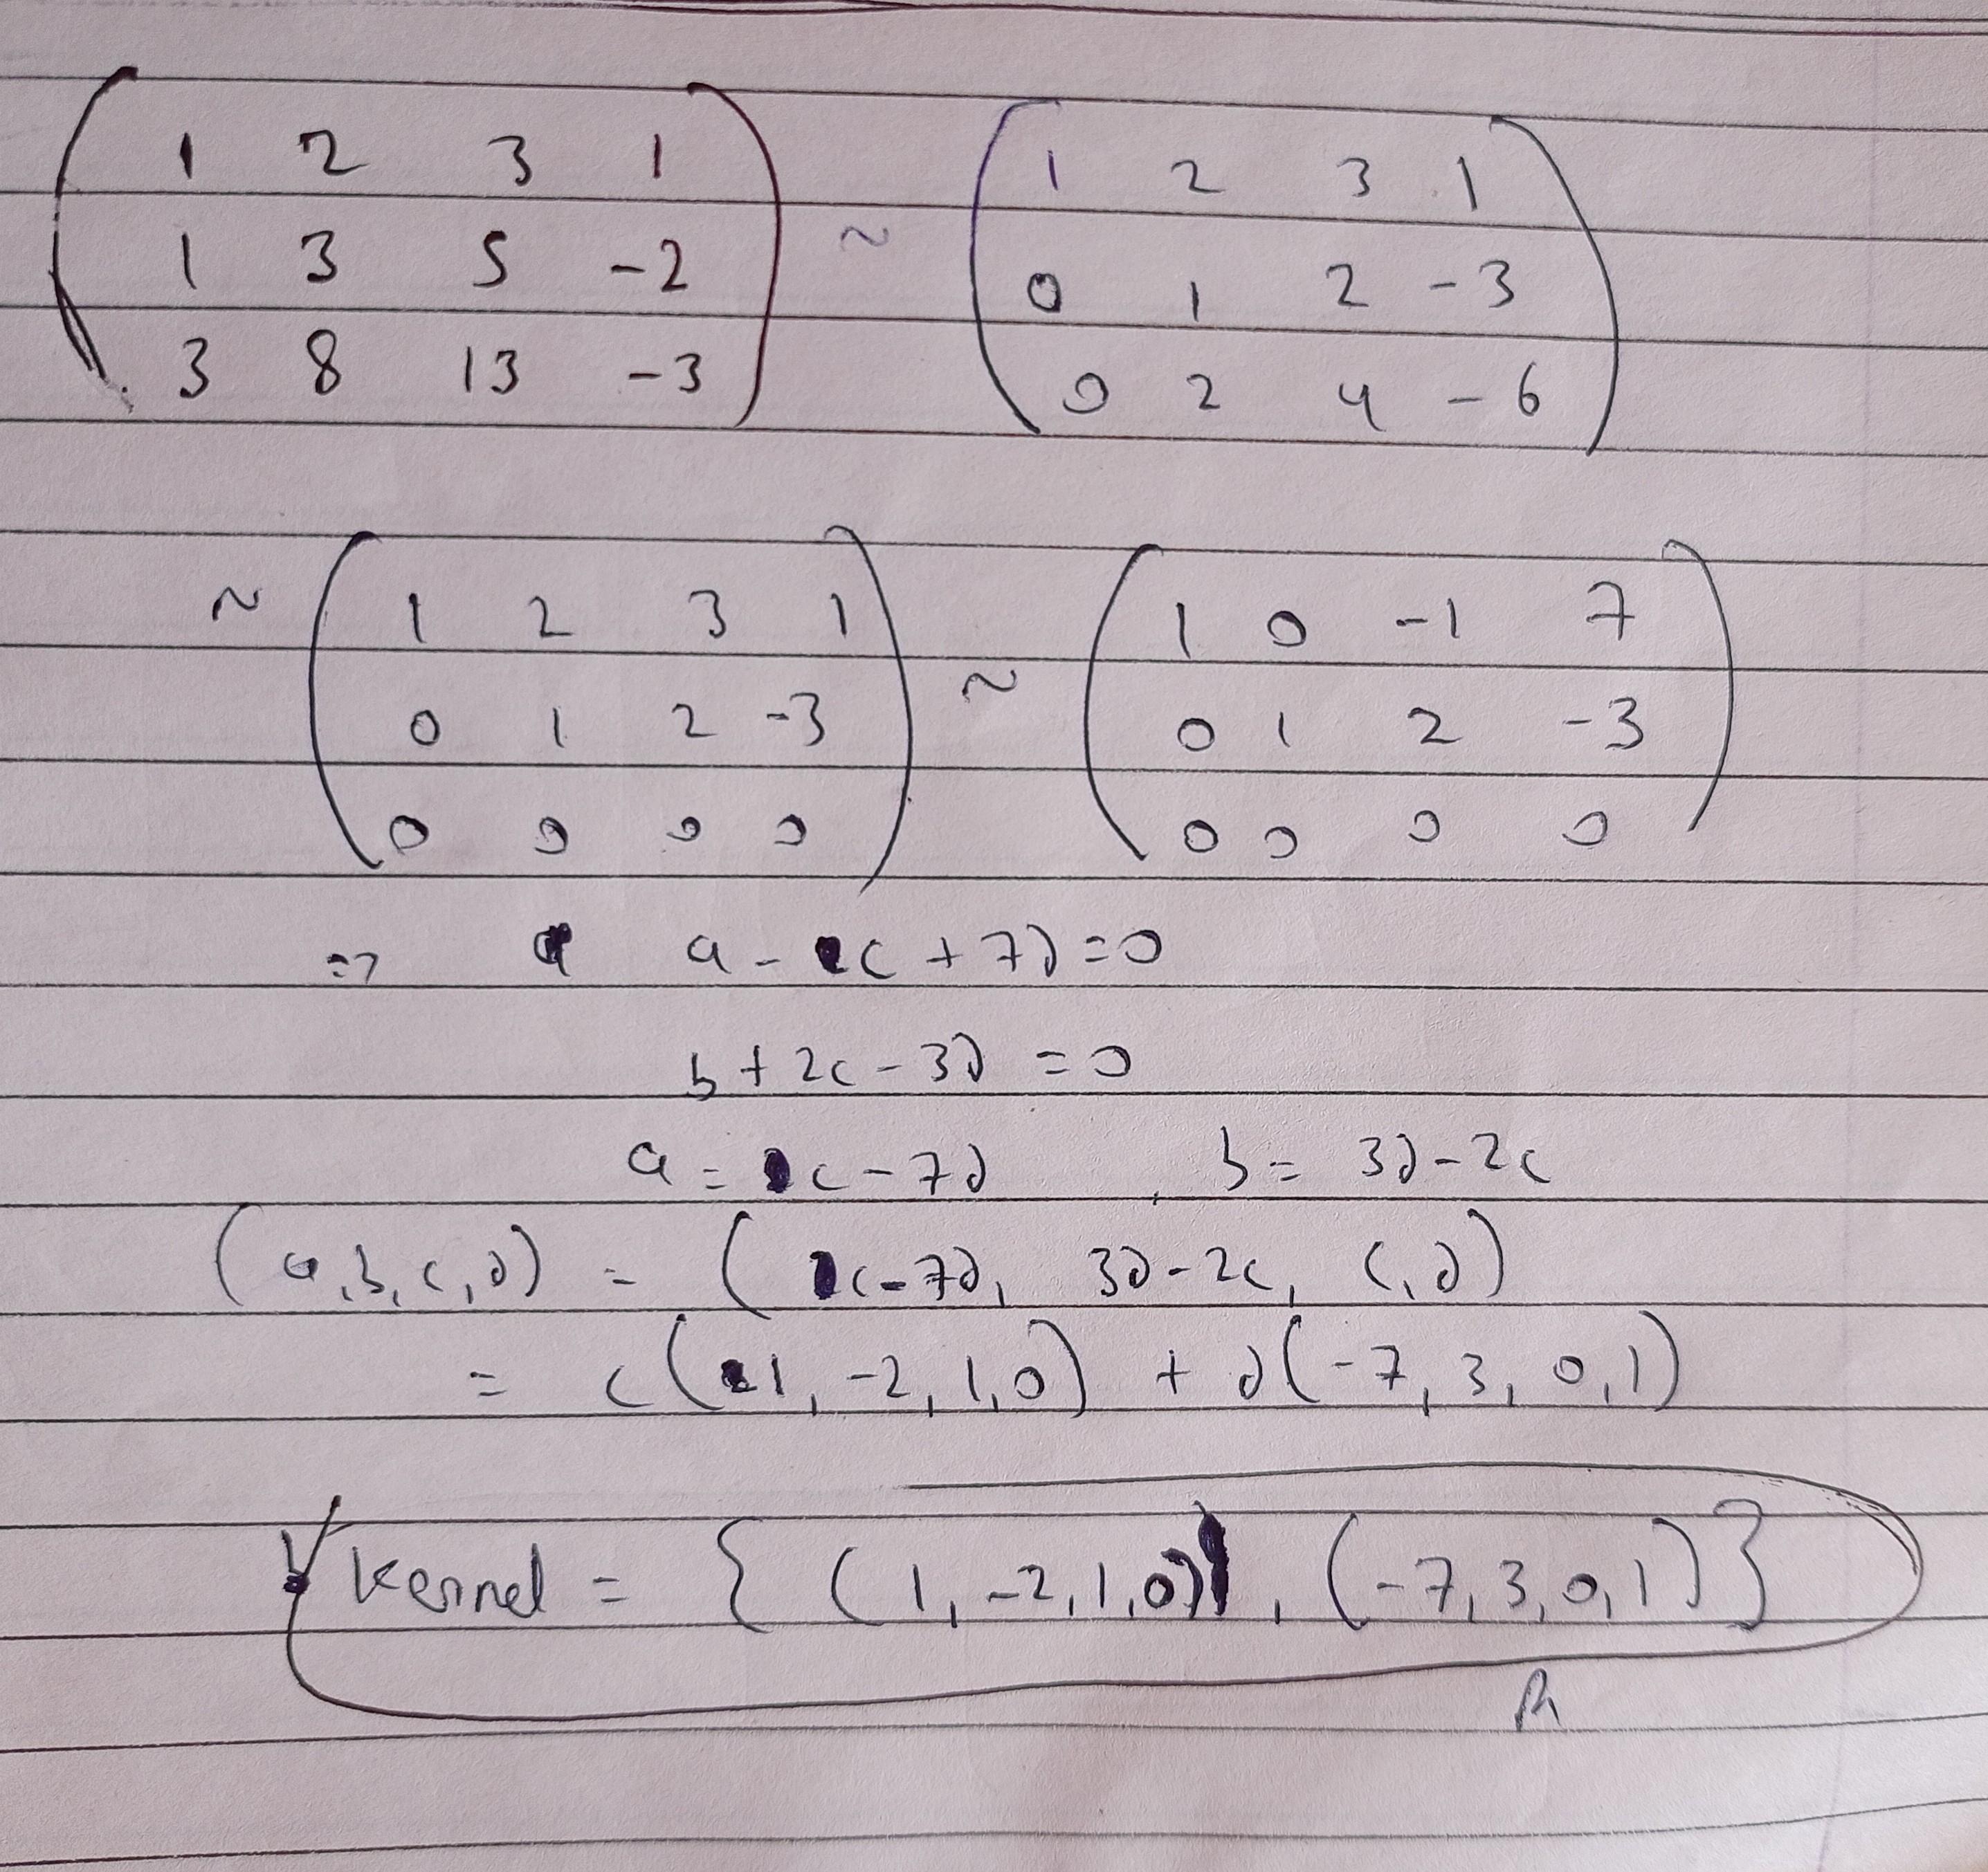 ( 1 2 3 1 ) ~ ( 1 2 3 1 )
( 1 3 5 -2 ) ( 0 1 2 -3 )
( 3 8 13 -3 ) ( 0 2 4 -6 )
~ ( 1 2 3 1 ) ~ ( 1 0 -1 7 )
( 0 1 2 -3 ) ( 0 1 2 -3 )
( 0 0 0 0 ) ( 0 0 0 0 )
=> a - c + 7d = 0
b + 2c - 3d = 0
a = c - 7d , b = 3d - 2c
(a, b, c, d) = (c - 7d, 3d - 2c, c, d)
= c(1, -2, 1, 0) + d(-7, 3, 0, 1)
Kernel = { (1, -2, 1, 0), (-7, 3, 0, 1) }